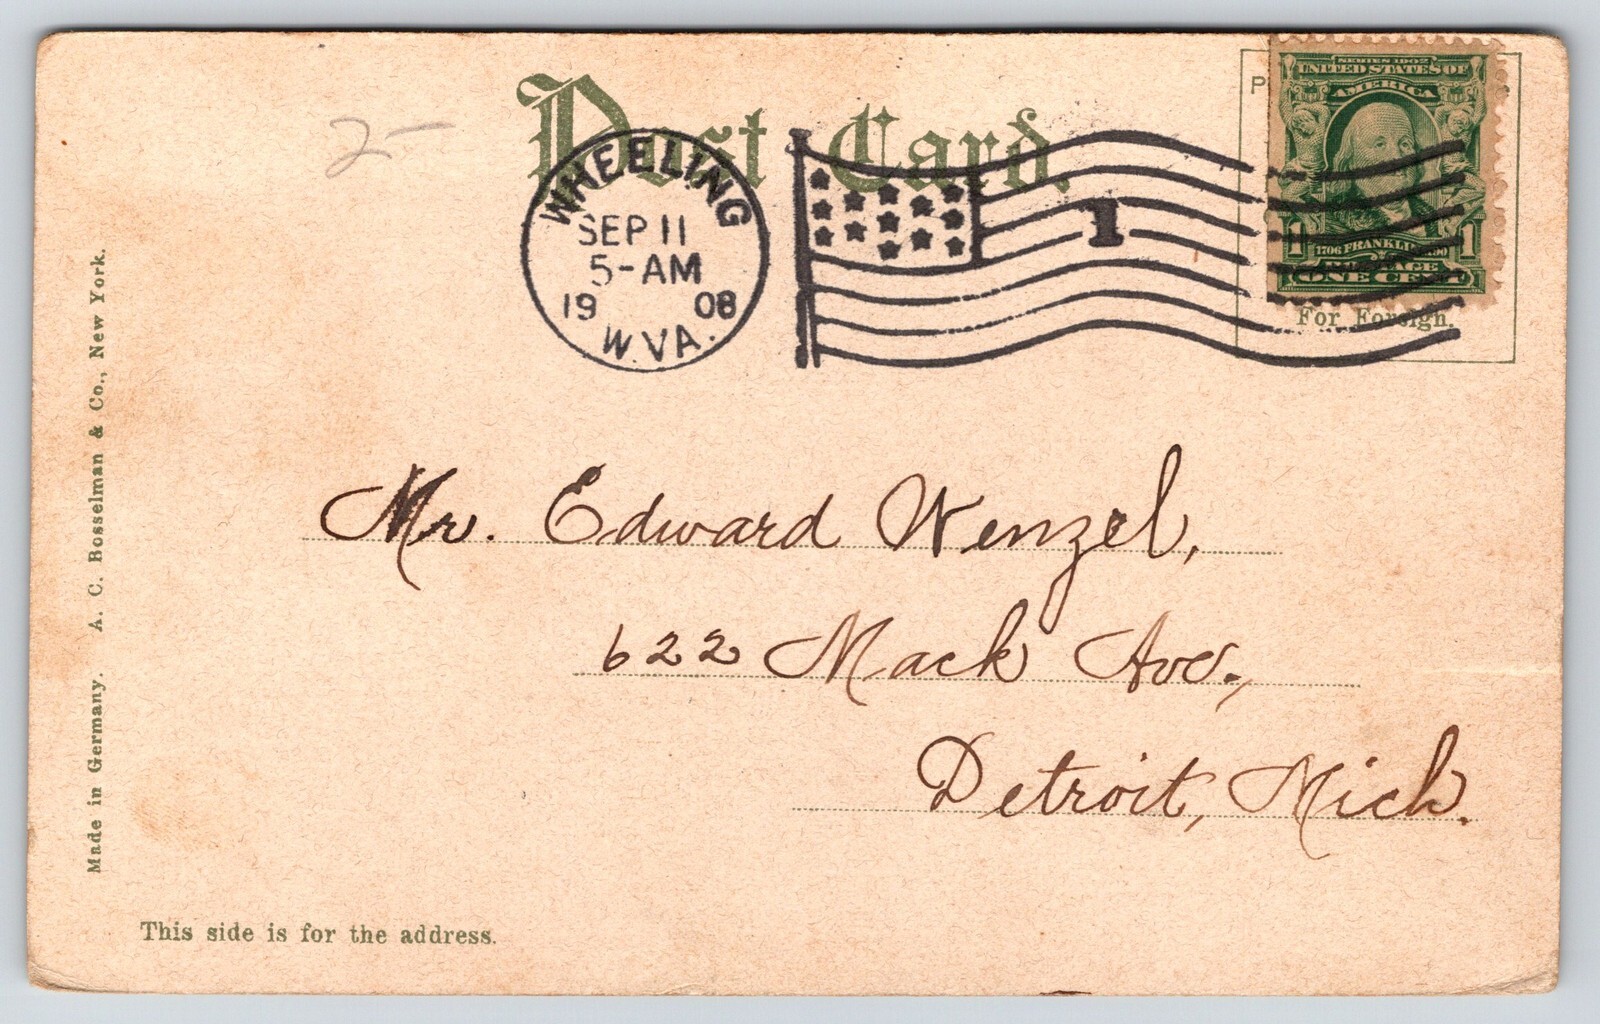 2-
Post Card.
WHEELING
SEP 11
5-AM
19 08
W.VA.
1
SERIES 1902
UNITED STATES OF
AMERICA
1 1706 FRANKLIN 1790 1
POSTAGE
ONE CENT
For Foreign.
Mr. Edward Wenzel,
622 Mack Ave.,
Detroit, Mich.
Made in Germany. A. C. Bosselman & Co., New York.
This side is for the address.